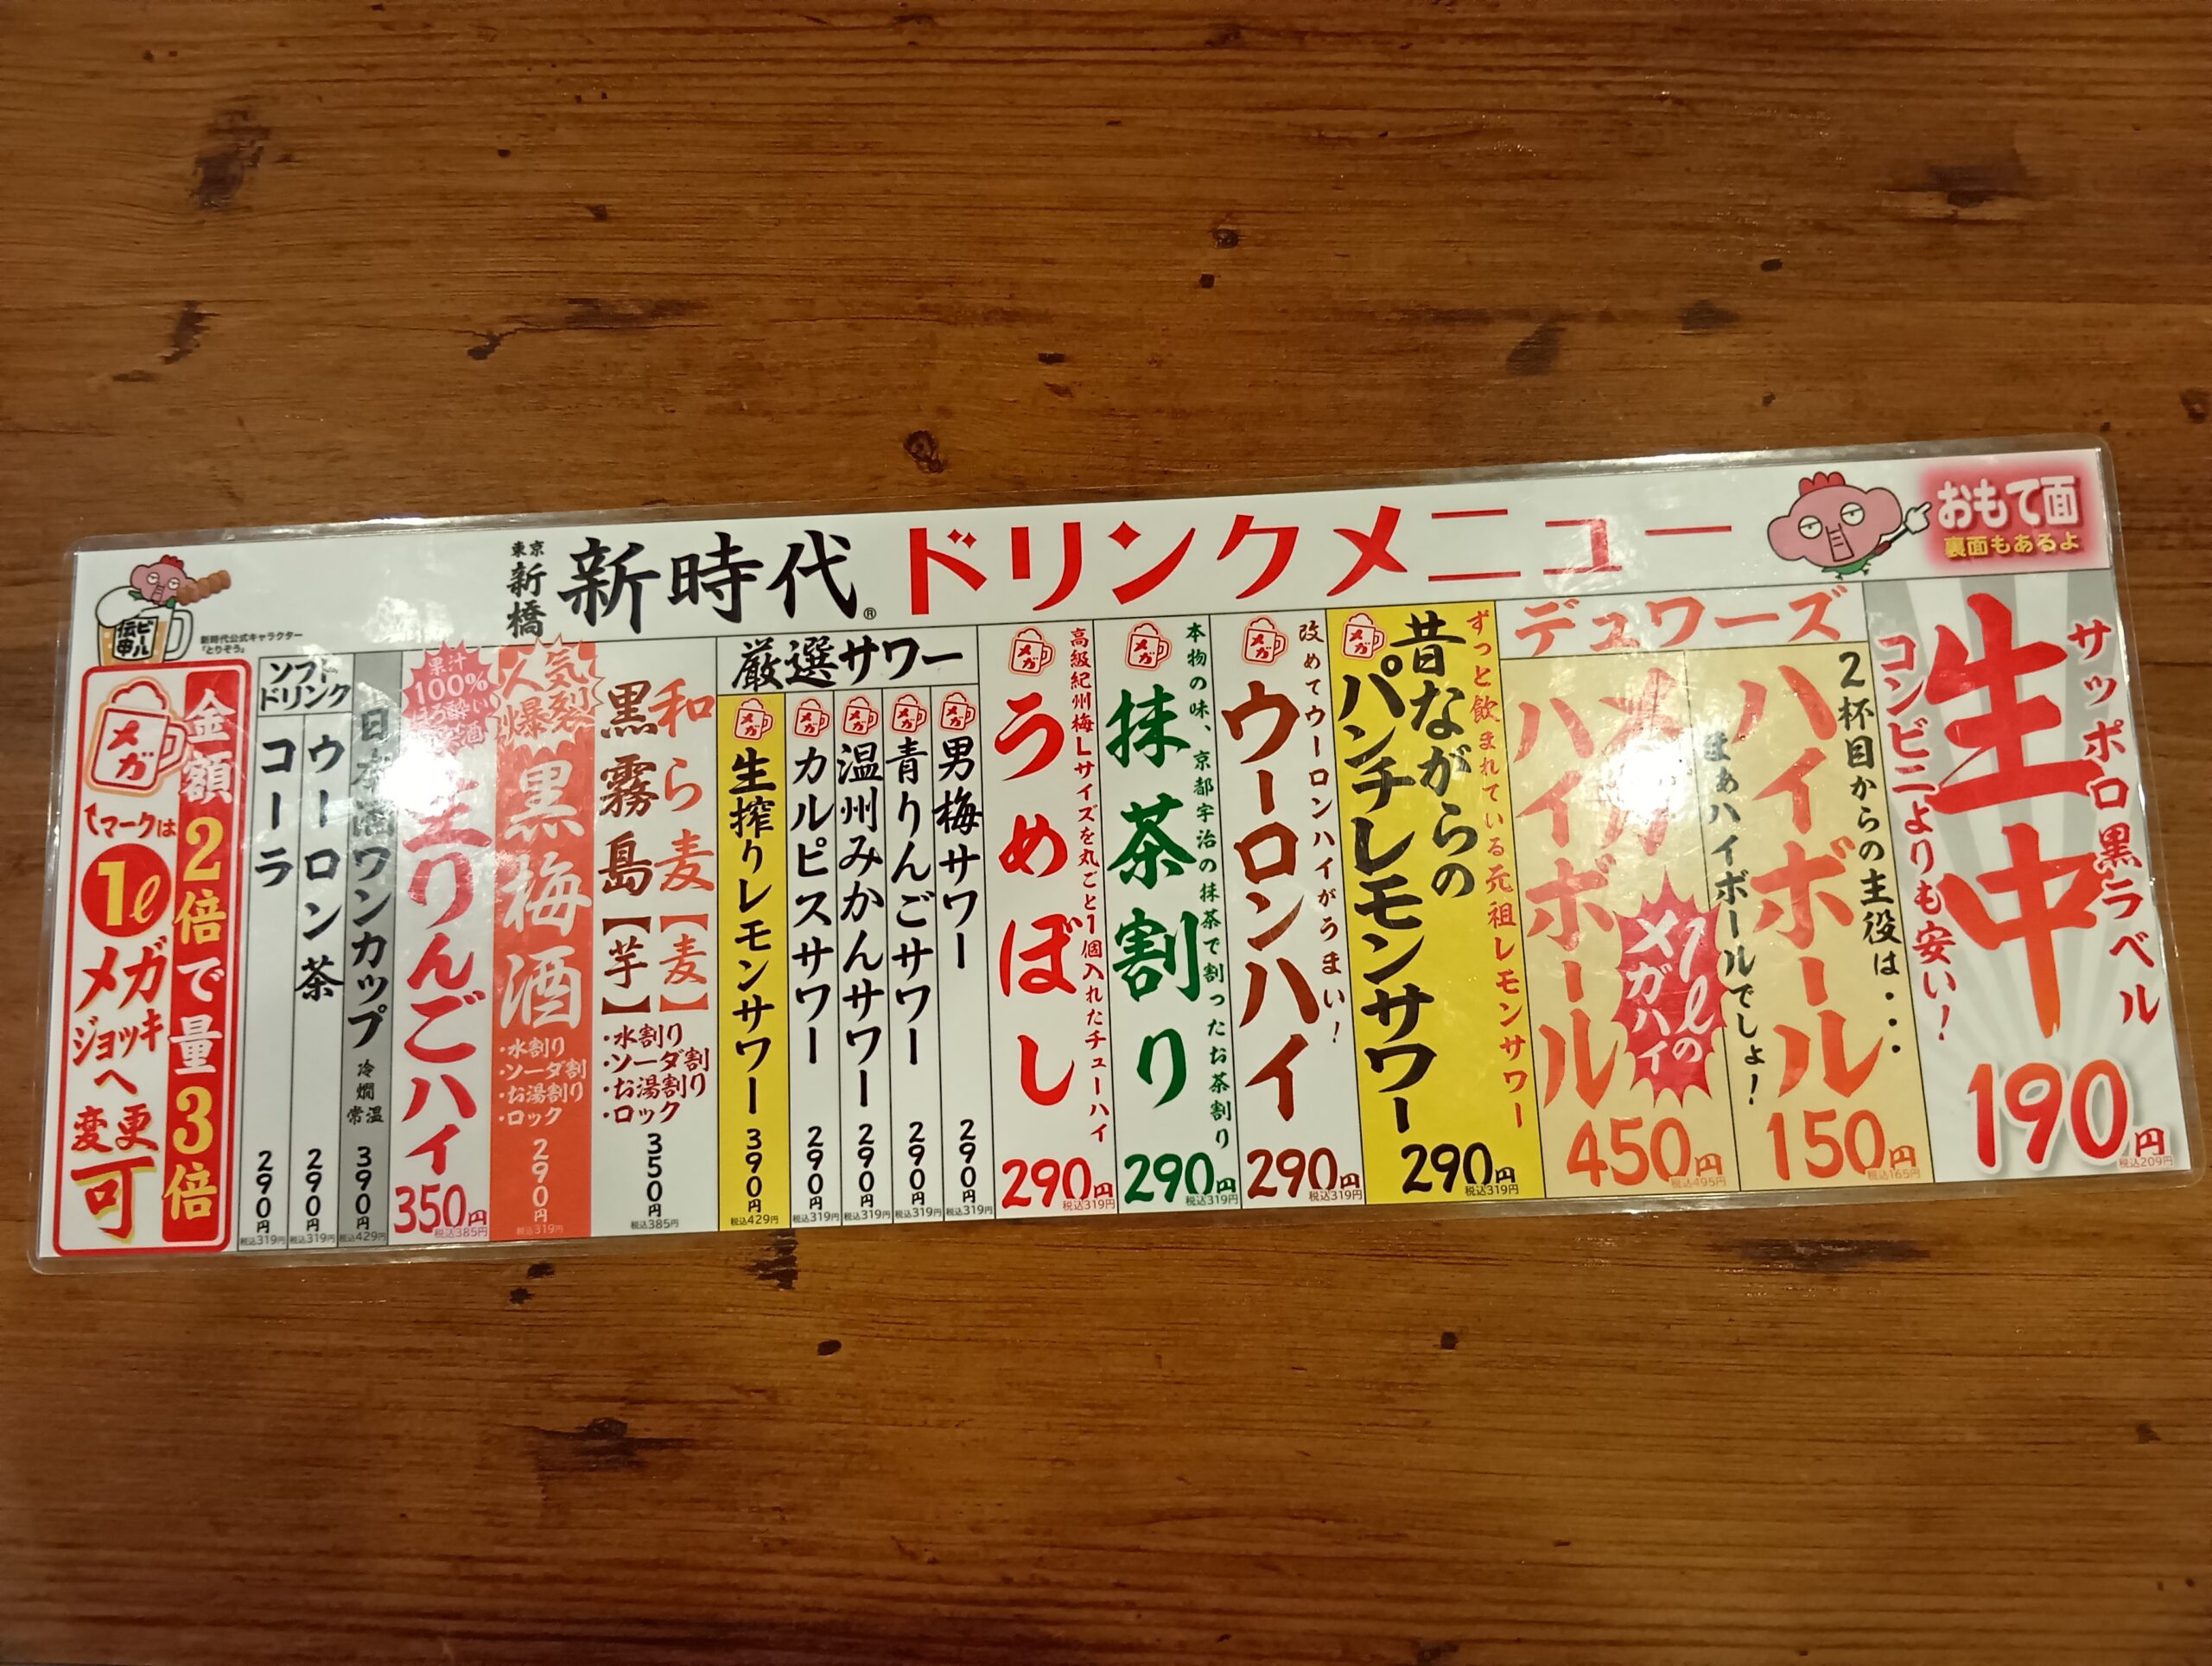 東京
新橋
新時代®
ドリンクメニュー
おもて面
裏面もあるよ
サッポロ黒ラベル
生中
コンビニよりも安い!
190円
税込209円
デュワーズ
2杯目からの主役は・・・
ハイボール
まぁハイボールでしょ!
150円
税込165円
メガ
ハイボール
1ℓの
メガハイ
450円
税込495円
ずっと飲まれている元祖レモンサワー
メガ
昔ながらの
パンチレモンサワー
290円
税込319円
改めてウーロンハイがうまい!
メガ
ウーロンハイ
290円
税込319円
本物の味、京都宇治の抹茶で割ったお茶割り
メガ
抹茶割り
290円
税込319円
高級紀州梅Lサイズを丸ごと1個入れたチューハイ
メガ
うめぼし
290円
税込319円
厳選サワー
メガ
男梅サワー
290円
税込319円
メガ
青りんごサワー
290円
税込319円
メガ
温州みかんサワー
290円
税込319円
メガ
カルピスサワー
290円
税込319円
メガ
生搾りレモンサワー
390円
税込429円
和ら麦【麦】
黒霧島【芋】
・水割り
・ソーダ割
・お湯割り
・ロック
350円
税込385円
人気
爆裂
黒梅酒
・水割り
・ソーダ割
・お湯割り
・ロック
290円
税込319円
果汁
100%
ほろ酔い
生りんごハイ
350円
税込385円
日本酒ワンカップ
冷
燗
常温
390円
税込429円
ソフト
ドリンク
ウーロン茶
290円
税込319円
コーラ
290円
税込319円
ビール
伝串
新時代公式キャラクター
「とりぞう」
金額2倍で量3倍
メガ
↑マークは
1ℓ
メガ
ジョッキ
へ
変更
可